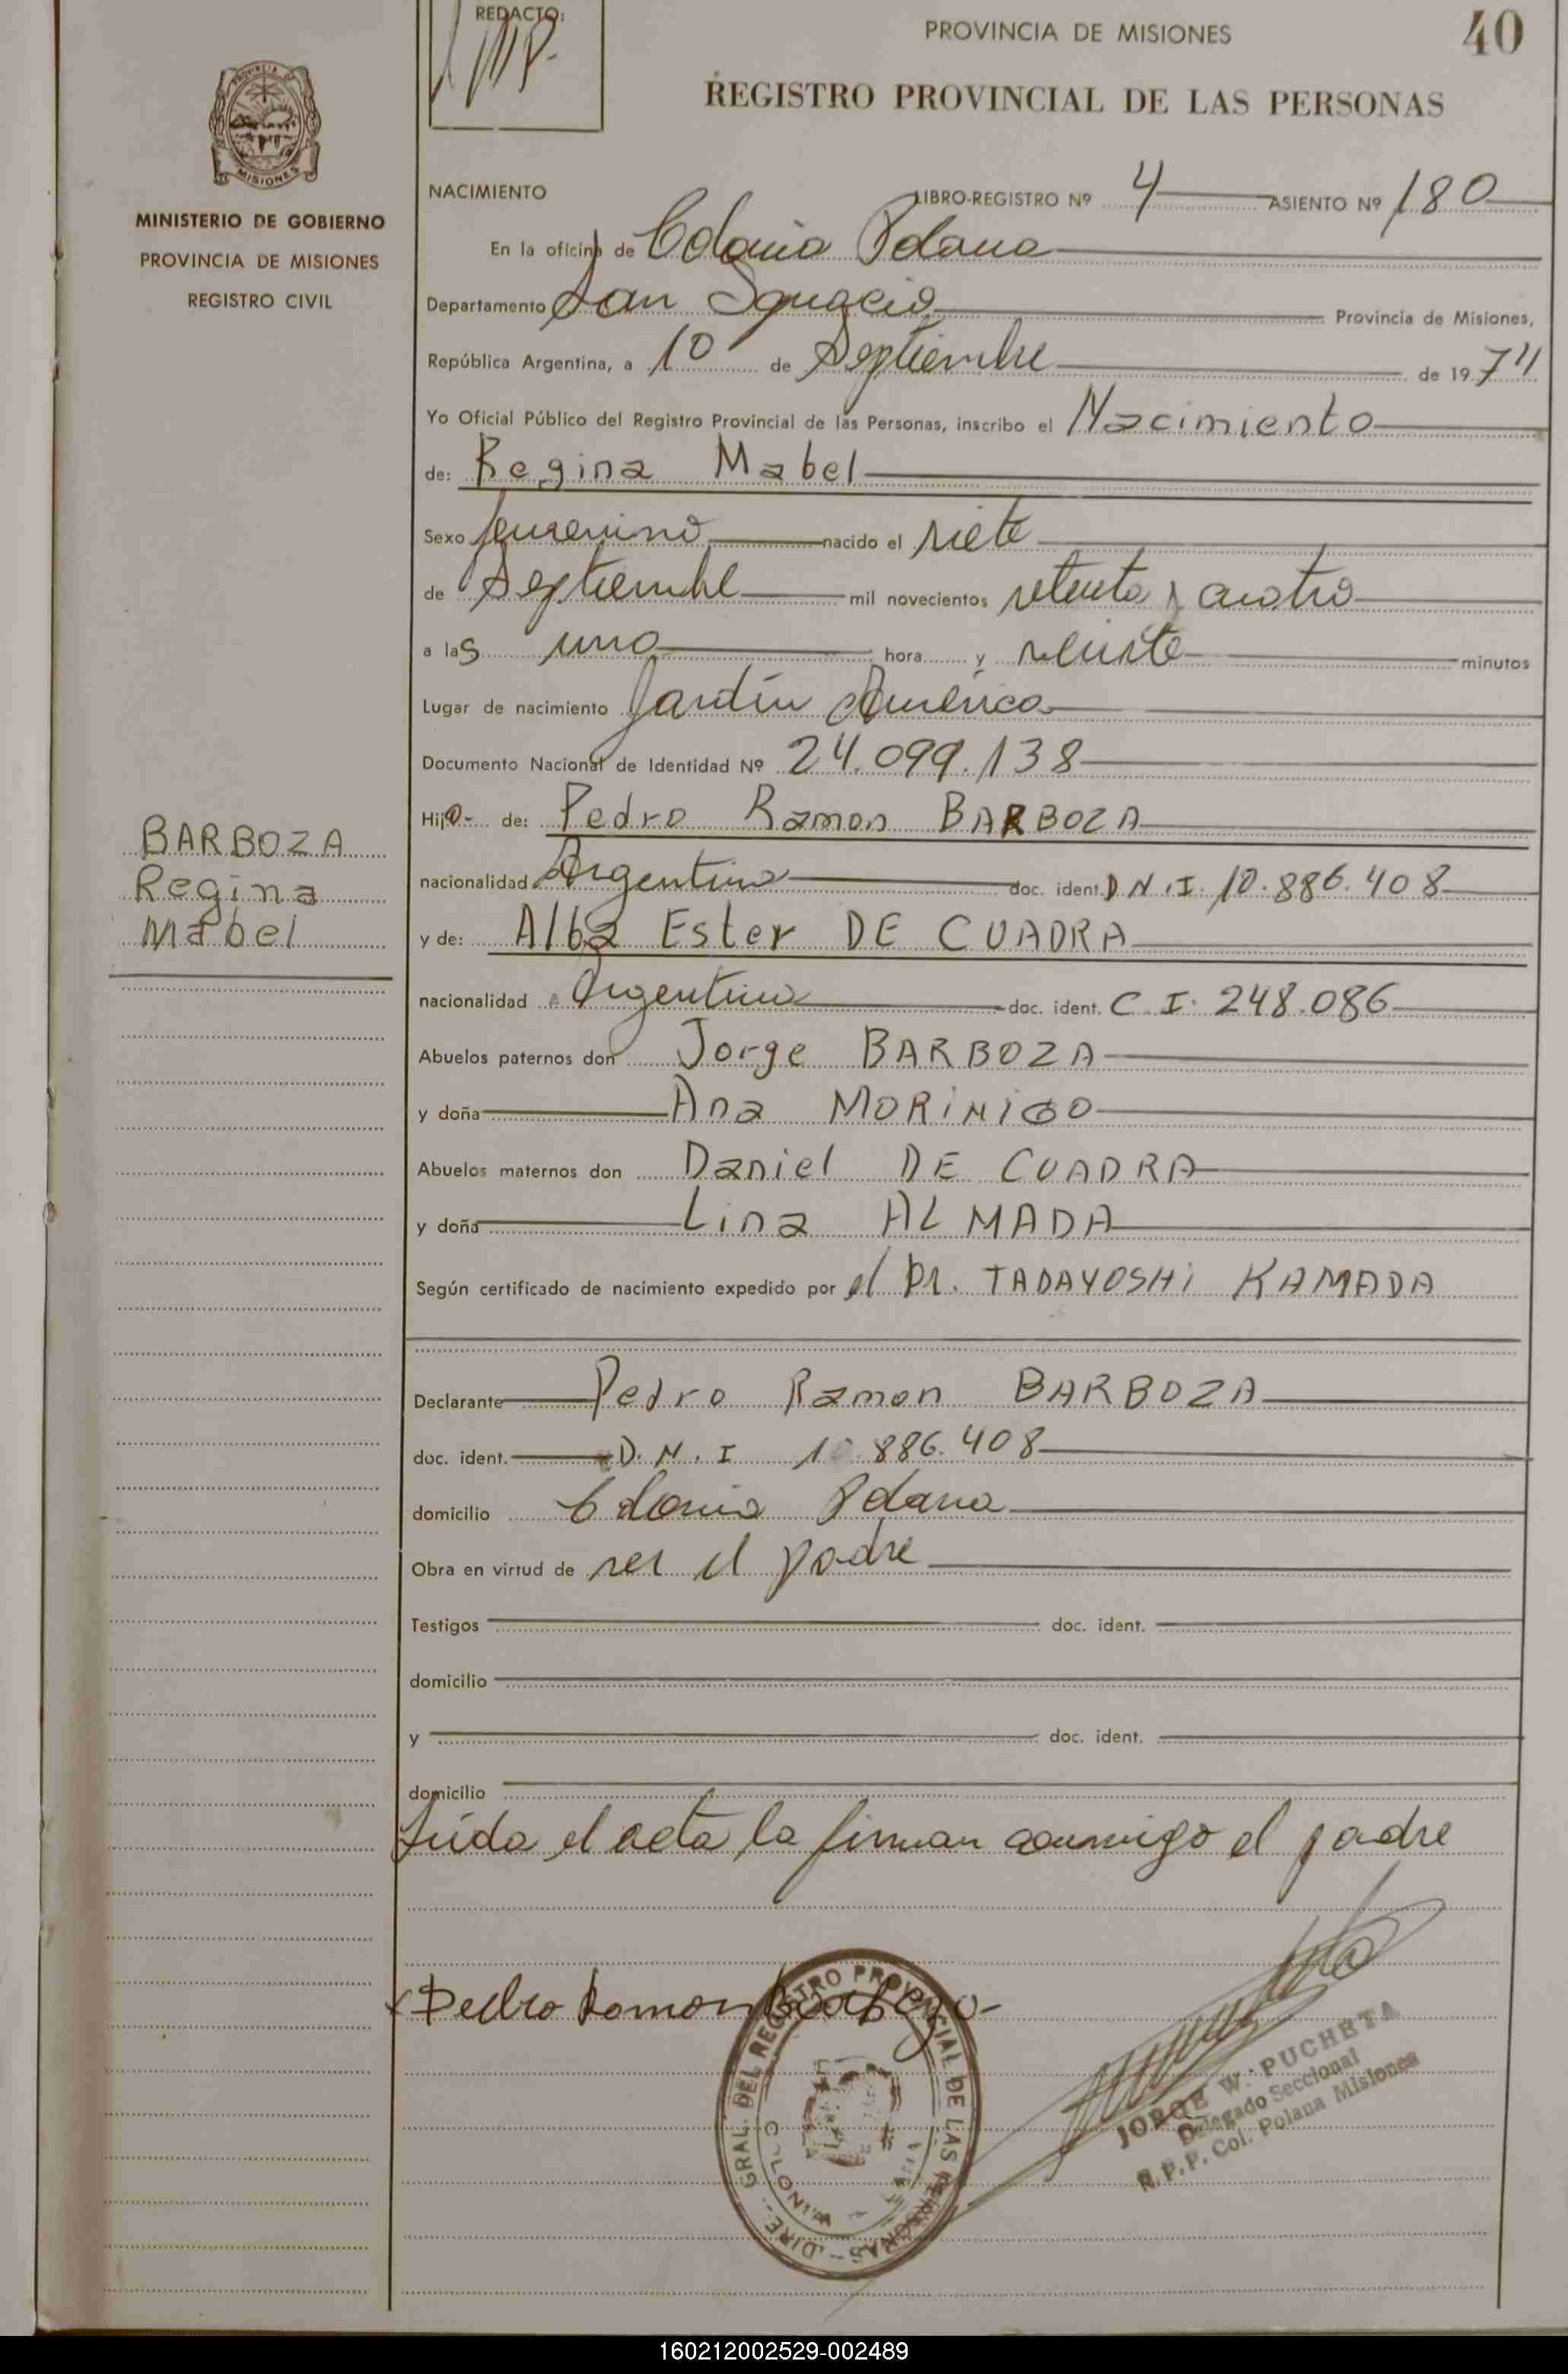 REDACTO:
PROVINCIA DE MISIONES
40
REGISTRO PROVINCIAL DE LAS PERSONAS
MISIONES
MINISTERIO DE GOBIERNO
PROVINCIA DE MISIONES
REGISTRO CIVIL
NACIMIENTO LIBRO-REGISTRO Nº 4 ASIENTO Nº 180
En la oficina de Colonia Polana
Departamento San Ignacio Provincia de Misiones,
República Argentina, a 10 de Septiembre de 1974
Yo Oficial Público del Registro Provincial de las Personas, inscribo el Nacimiento
de: Regina Mabel
Sexo femenino nacido el siete
de Septiembre mil novecientos setenta y cuatro
a las uno hora y veinte minutos
Lugar de nacimiento Jardín América
Documento Nacional de Identidad Nº 24.099.138
Hija de: Pedro Ramon BARBOZA
nacionalidad Argentina doc. ident. D.N.I. 10.886.408
y de: Alba Ester DE CUADRA
nacionalidad Argentina doc. ident. C.I. 248.086
Abuelos paternos don Jorge BARBOZA
y doña Ana MORINIGO
Abuelos maternos don Daniel DE CUADRA
y doña Lina ALMADA
Según certificado de nacimiento expedido por el Dr. TADAYOSHI KAMADA
Declarante Pedro Ramon BARBOZA
doc. ident. D.N.I 10.886.408
domicilio Colonia Polana
Obra en virtud de ser el padre
Testigos doc. ident.
domicilio
y doc. ident.
domicilio
Leída el acta la firman conmigo el padre
BARBOZA
Regina
Mabel
x Pedro Ramon Barboza
DIRE. GRAL. DEL REGISTRO PROVINCIAL DE LAS PERSONAS
COLONIA
JORGE W. PUCHETA
Delegado Seccional
R.P.P. Col. Polana Misiones
160212002529-002489